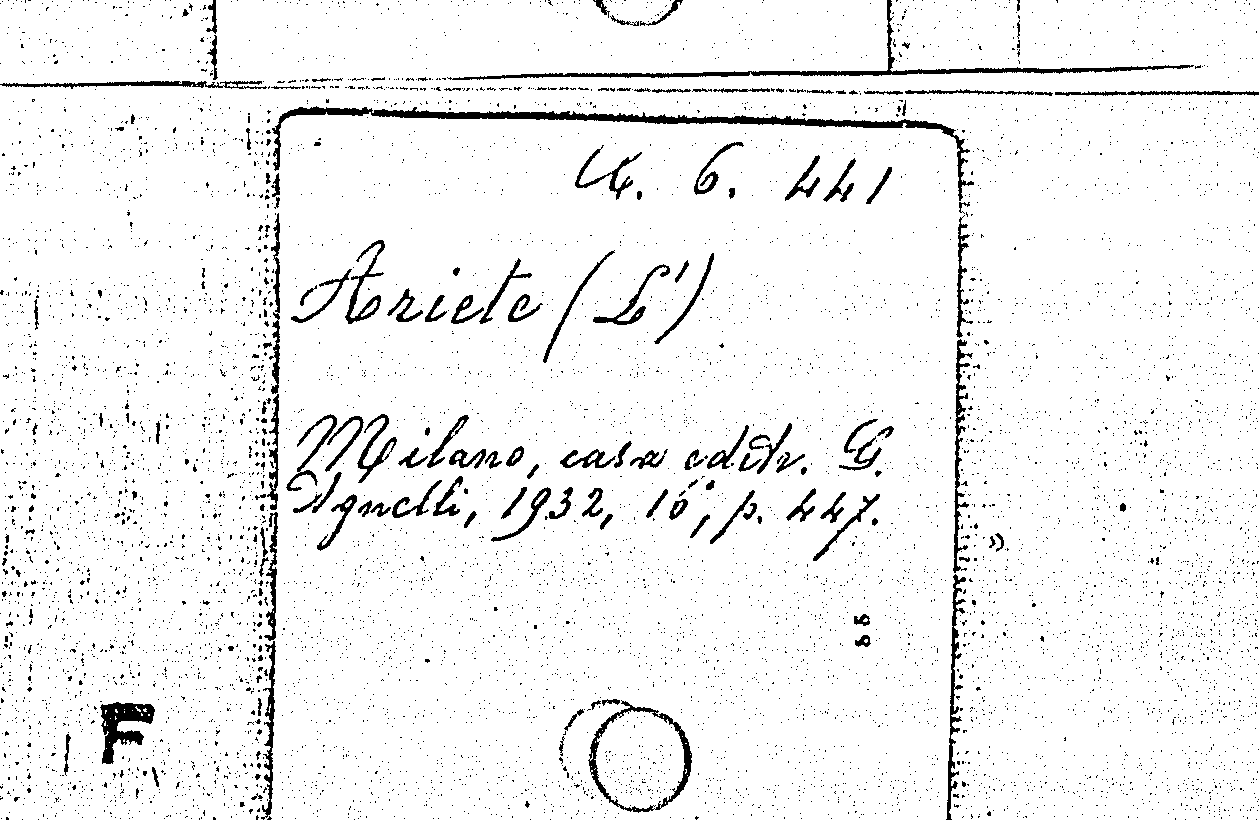 6. 441
Ariete (L')
Milano, casa editr. G.
Agnelli, 1932, 16°, p. 447.
55
F